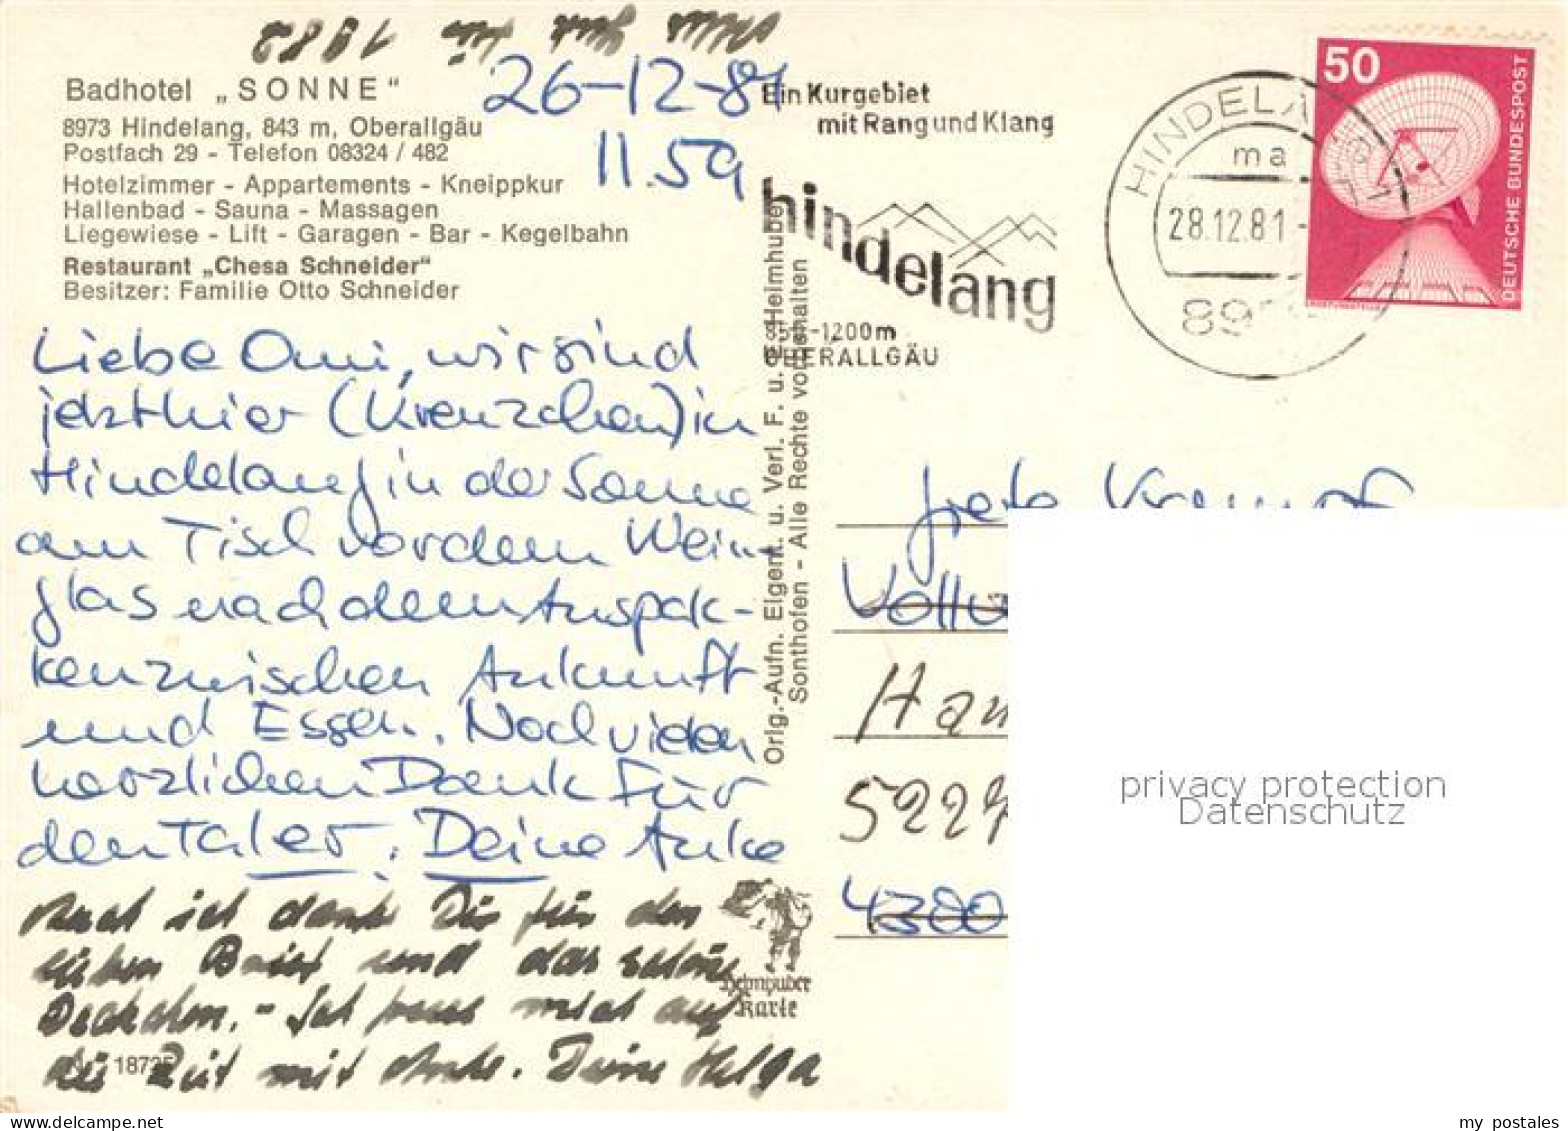 Alles Gute für 1982
Badhotel „SONNE"
8973 Hindelang, 843 m, Oberallgäu
Postfach 29 - Telefon 08324 / 482
Hotelzimmer - Appartements - Kneippkur
Hallenbad - Sauna - Massagen
Liegewiese - Lift - Garagen - Bar - Kegelbahn
Restaurant „Chesa Schneider"
Besitzer: Familie Otto Schneider
26-12-81
11.59
Liebe Omi, wir sind
jetzt hier (Kreuzchen) in
Hindelang in der Sonne
am Tisch vor dem Wein-
glas nach dem Auspak-
ken zwischen Ankunft
und Essen. Noch vielen
herzlichen Dank für
den Taler. Deine Anke
Auch ich danke Dir für den
lieben Brief und das schöne
Deckchen. - Ich freue mich auf
die Zeit mit Anke. Deine Helga
1873
Orig.-Aufn. Eigent. u. Verl. F. u. Heimhuber
Sonthofen - Alle Rechte vorbehalten
Heimhuber
Karte
Ein Kurgebiet
mit Rang und Klang
hindelang
850-1200m
OBERALLGÄU
HINDELA
ma
28.12.81-
897
50
DEUTSCHE BUNDESPOST
Grete
Ham
5227
4300
privacy protection
Datenschutz
my postales